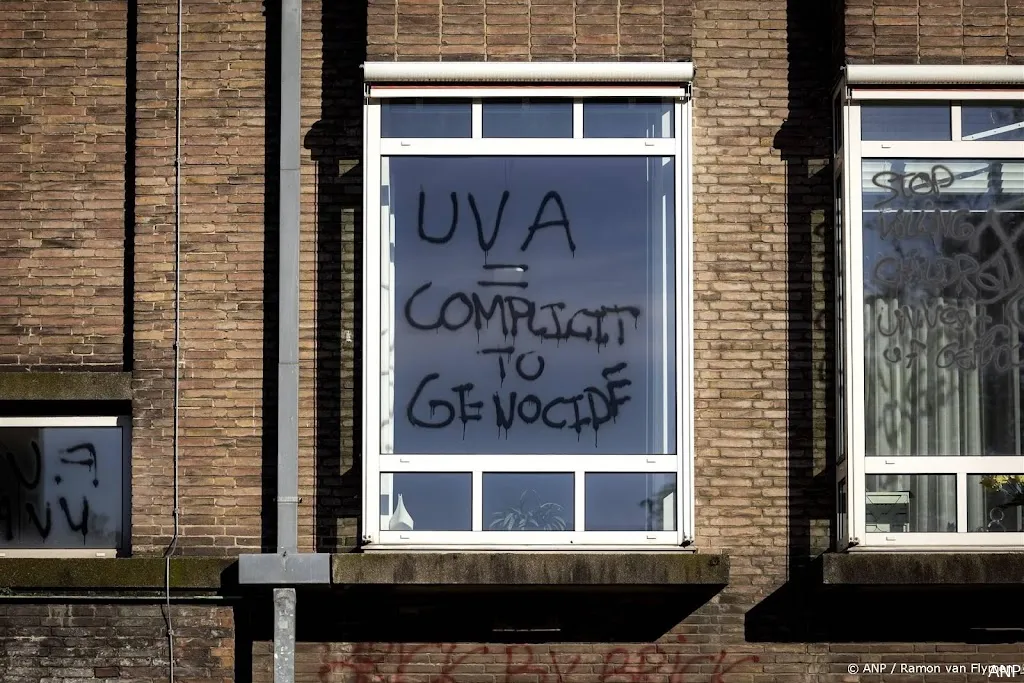 UVA
=
COMPLICIT
TO
GENOCIDE
STOP
KILLING
CHILDREN
F.
U
UVA
BRICK BY BRICK
© ANP / Ramon van Flymen
ANP